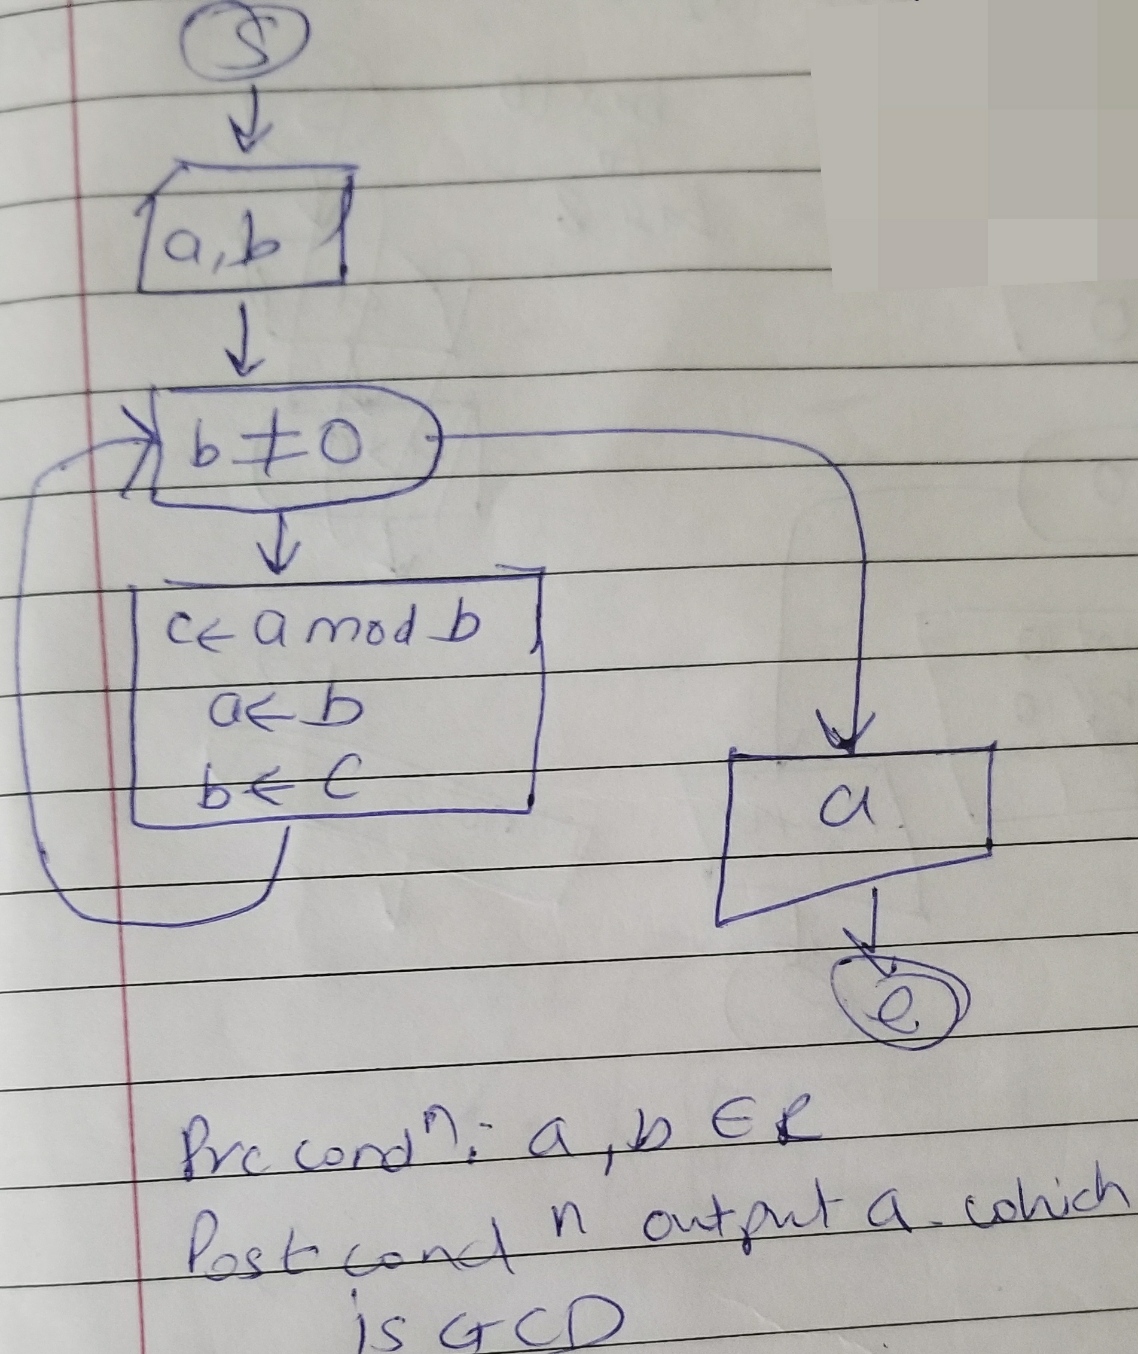 S
a, b
b ≠ 0
c ← a mod b
a ← b
b ← c
a
e
Pre condⁿ: a, b ∈ R
Post cond n output a which
is GCD